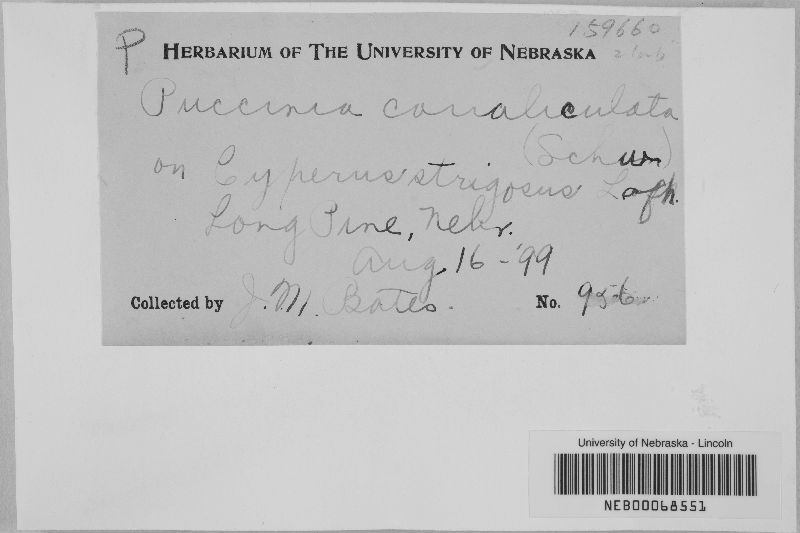 159660
P HERBARIUM OF THE UNIVERSITY OF NEBRASKA
Puccinia canaliculata
(Schw)
on Cyperus strigosus L
Long Pine, Nebr.
Aug. 16 - '99
Collected by J. M. Bates. No. 956
University of Nebraska - Lincoln
NEB00068551